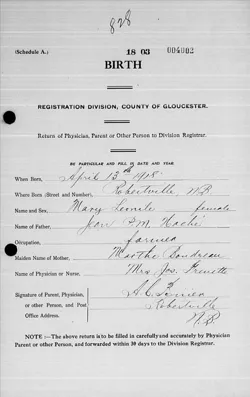 828
(Schedule A.)
18 03 004002
BIRTH
REGISTRATION DIVISION, COUNTY OF GLOUCESTER.
Return of Physician, Parent or Other Person to Division Registrar.
BE PARTICULAR AND FILL IN DATE AND YEAR.
When Born, April 13th 1918
Where Born (Street and Number), Robertville, N.B.
Name and Sex, Mary Leonile female
Name of Father, Jean F.M. Haché
Occupation, farmer
Maiden Name of Mother, Marthe Boudreau
Name of Physician or Nurse, Mrs. Jos. Frenette
Signature of Parent, Physician, A.C.
or other Person, and Post Robertville
Office Address. N.B.
NOTE :—The above return is to be filled in carefully and accurately by Physician
Parent or other Person, and forwarded within 30 days to the Division Registrar.